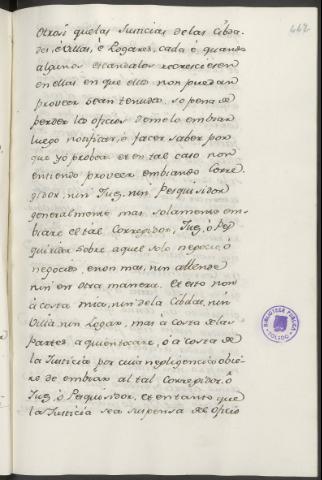 462
Otrosi quelas Justicias delas Cibda-
des, è Villas, è Logares, cada è quando
algunos escandalos recresciesen
en ellas en que ellos non puedan
proveer sean tenudos, so pena de
perder los oficios demelo embiar
luego notificar, ò facer saber por
que yo probea et en tal caso non
entiendo proveer embiando Corre
gidor, nin Juez, nin Pesquisidor
generalmente mas solamente em-
biare el tal Corregidor, Juez, ò Pes
quisidor sobre aquel solo negocio, ò
negocios, e non mas, nin allende
nin en otra manera. Et esto non
à costa mia, nin dela Cibdat, nin
Villa nin Logar, mas à costa delas
Partes a quien tocare, ò à costa de
la Justicia por cuia negligencia obie-
re de embiar al tal Corregidor, ò
Juez, ò Pesquisidor, et entanto que
la Justicia sea suspensa del oficio
BIBLIOTECA PUBLICA
TOLEDO